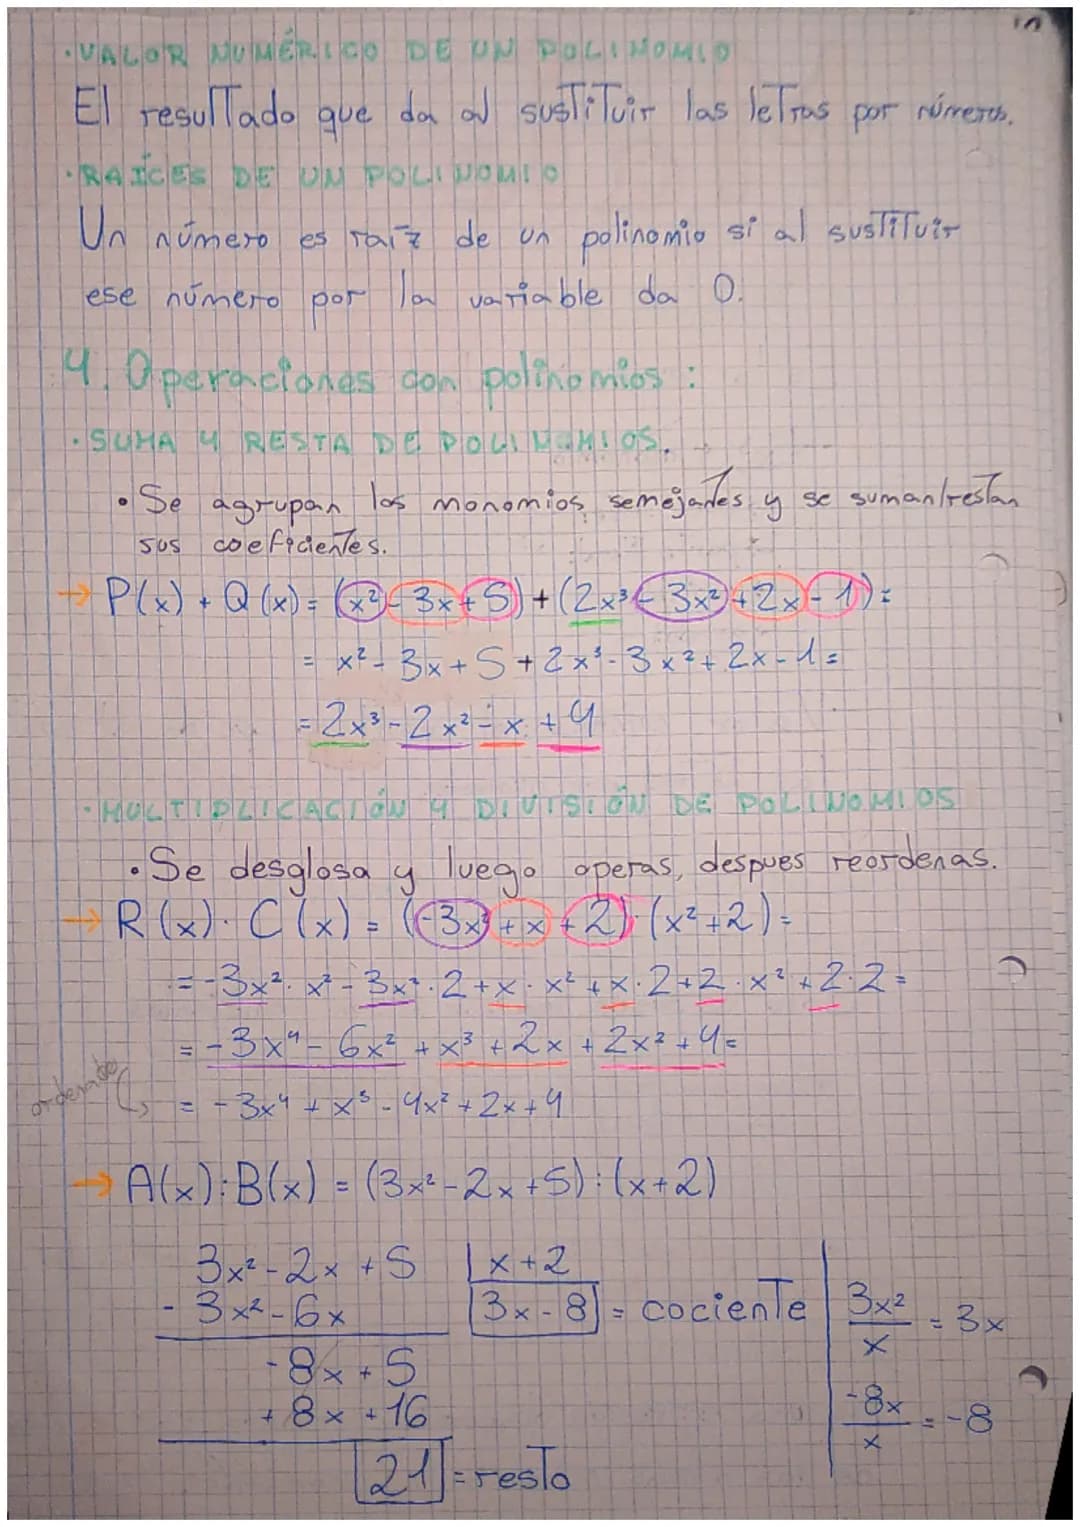 · VALOR NUMÉRICO DE UN POLINOMIO
El resultado que da al sustituir las letras por números.
· RAÍCES DE UN POLINOMIO
Un número es raíz de un polinomio si al sustituir
ese número por la variable da 0.
4. Operaciones con polinomios:
· SUMA Y RESTA DE POLINOMIOS.
• Se agrupan los monomios semejantes y se suman/restan
sus coeficientes.
→ P(x) + Q(x) = (x² - 3x + 5) + (2x³ - 3x² + 2x - 1) =
= x² - 3x + 5 + 2x³ - 3x² + 2x - 1 =
= 2x³ - 2x² - x + 4
· MULTIPLICACIÓN Y DIVISIÓN DE POLINOMIOS
• Se desglosa y luego operas, despues reordenas.
→ R(x) · C(x) = (-3x² + x + 2) · (x² + 2) =
= -3x² · x² - 3x² · 2 + x · x² + x · 2 + 2 · x² + 2 · 2 =
= -3x⁴ - 6x² + x³ + 2x + 2x² + 4 =
ordenado
= -3x⁴ + x³ - 4x² + 2x + 4
→ A(x) : B(x) = (3x² - 2x + 5) : (x + 2)
3x² - 2x + 5 | x + 2
- 3x² - 6x 3x - 8 = cociente
3x²/x = 3x
-8x + 5
+ 8x + 16
-8x/x = -8
21 = resto